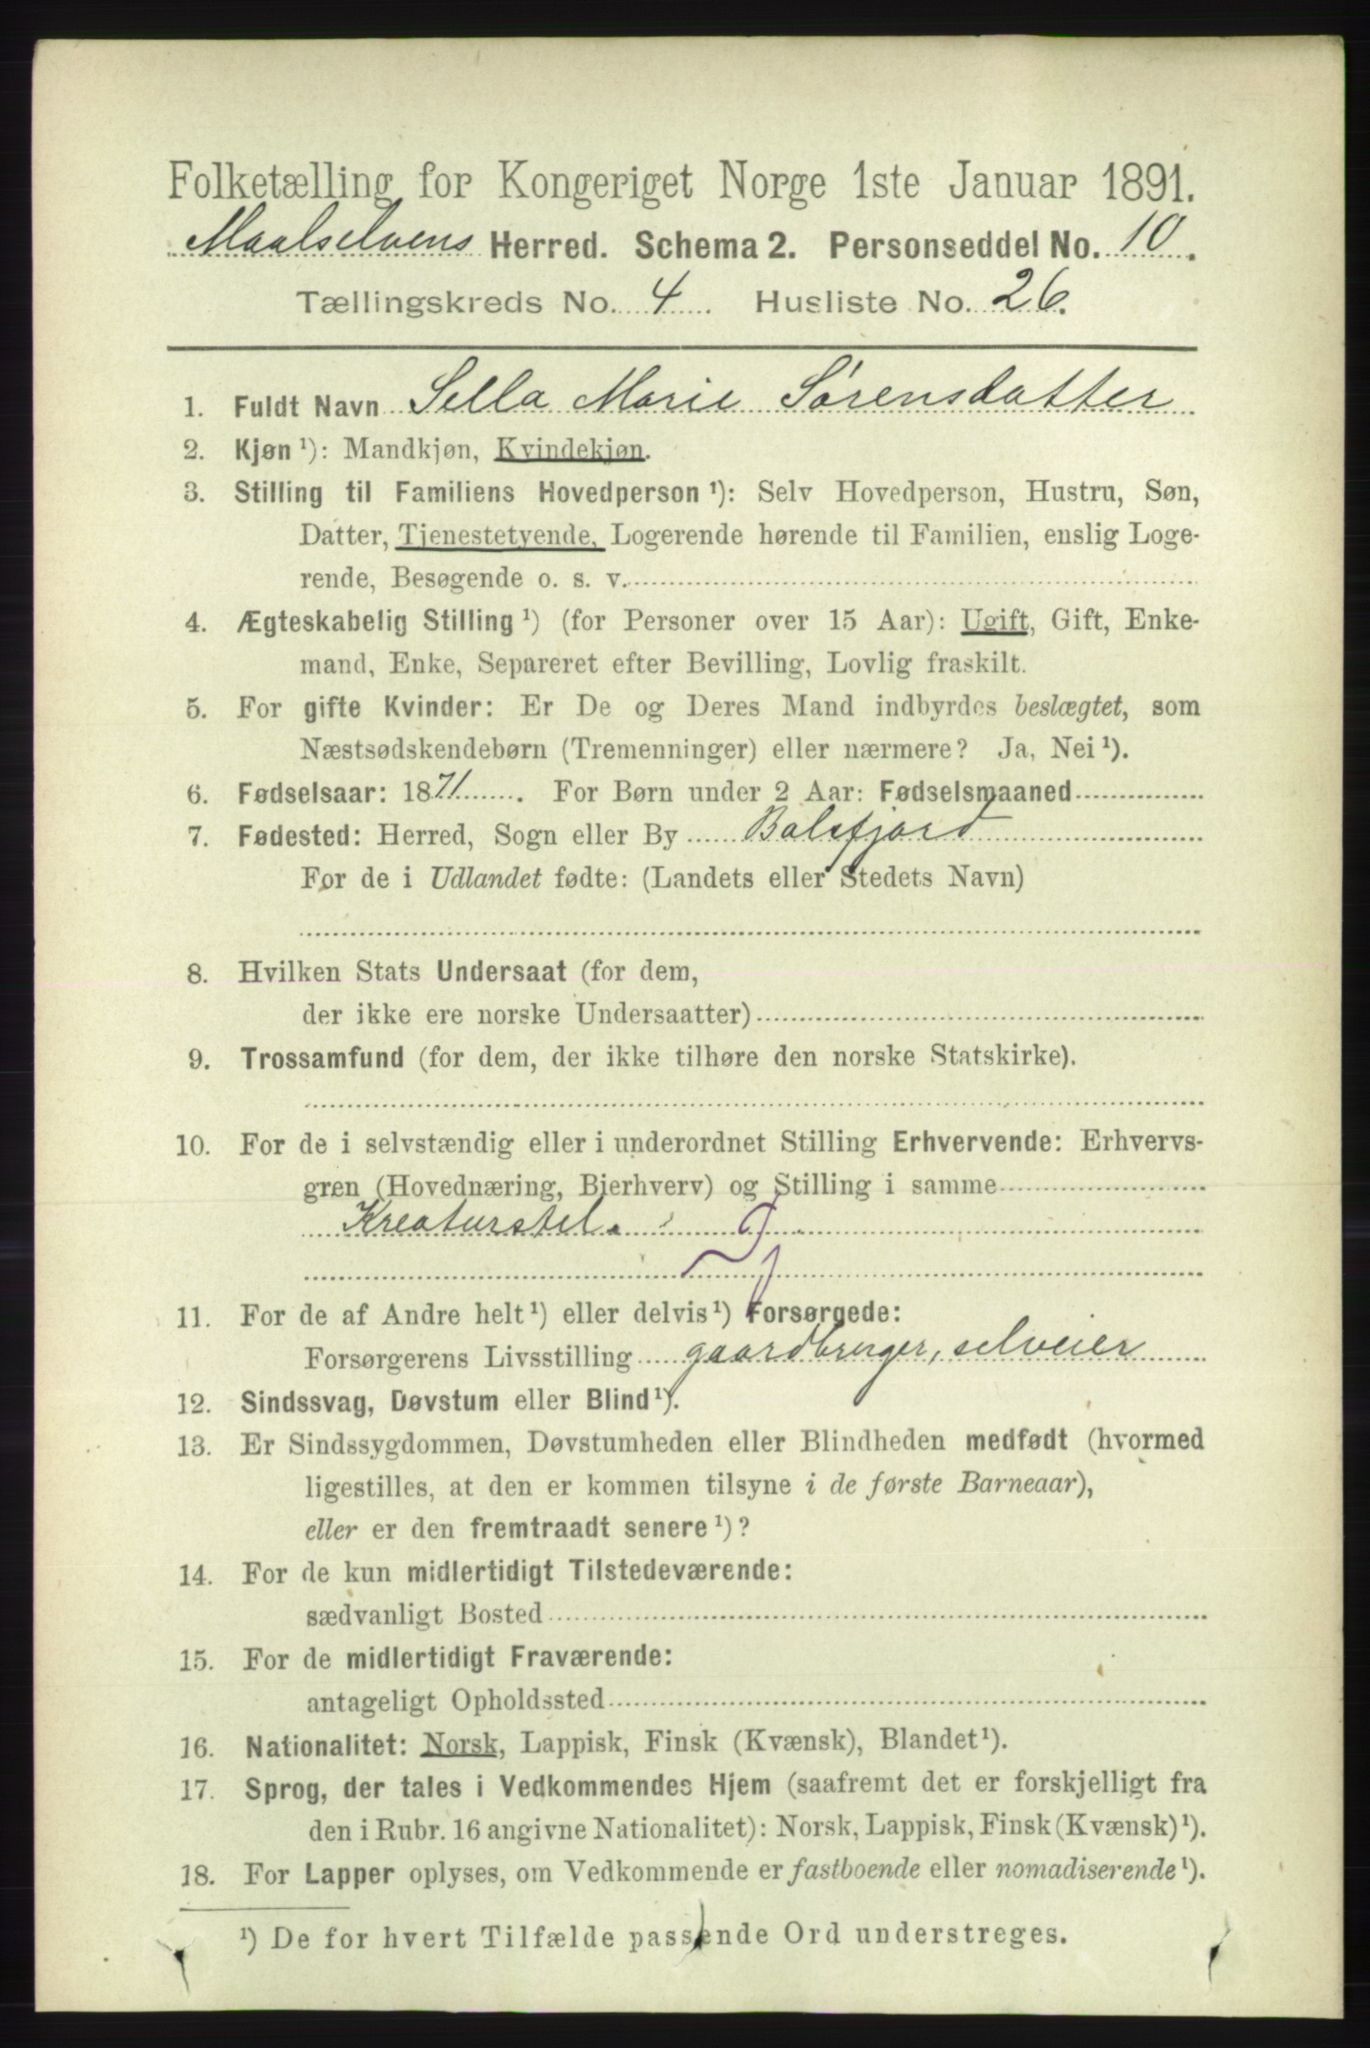 Folketælling for Kongeriget Norge 1ste Januar 1891.
Maalselvens Herred. Schema 2. Personseddel No. 10.
Tællingskreds No. 4. Husliste No. 26.
1. Fuldt Navn Sella Marie Sørensdatter
2. Kjøn ¹): Mandkjøn, Kvindekjøn.
3. Stilling til Familiens Hovedperson ¹): Selv Hovedperson, Hustru, Søn,
Datter, Tjenestetyende, Logerende hørende til Familien, enslig Loge-
rende, Besøgende o. s. v.
4. Ægteskabelig Stilling ¹) (for Personer over 15 Aar): Ugift, Gift, Enke-
mand, Enke, Separeret efter Bevilling, Lovlig fraskilt.
5. For gifte Kvinder: Er De og Deres Mand indbyrdes beslægtet, som
Næstsødskendebørn (Tremenninger) eller nærmere? Ja, Nei ¹).
6. Fødselsaar: 1871. For Børn under 2 Aar: Fødselsmaaned
7. Fødested: Herred, Sogn eller By Balsfjord
For de i Udlandet fødte: (Landets eller Stedets Navn)
8. Hvilken Stats Undersaat (for dem,
der ikke ere norske Undersaatter)
9. Trossamfund (for dem, der ikke tilhøre den norske Statskirke).
10. For de i selvstændig eller i underordnet Stilling Erhvervende: Erhvervs-
gren (Hovednæring, Bierhverv) og Stilling i samme
Kreaturstel.
11. For de af Andre helt ¹) eller delvis ¹) Forsørgede:
Forsørgerens Livsstilling gaardbruger, selveier
12. Sindssvag, Døvstum eller Blind ¹).
13. Er Sindssygdommen, Døvstumheden eller Blindheden medfødt (hvormed
ligestilles, at den er kommen tilsyne i de første Barneaar),
eller er den fremtraadt senere ¹)?
14. For de kun midlertidigt Tilstedeværende:
sædvanligt Bosted
15. For de midlertidigt Fraværende:
antageligt Opholdssted
16. Nationalitet: Norsk, Lappisk, Finsk (Kvænsk), Blandet ¹).
17. Sprog, der tales i Vedkommendes Hjem (saafremt det er forskjelligt fra
den i Rubr. 16 angivne Nationalitet): Norsk, Lappisk, Finsk (Kvænsk) ¹).
18. For Lapper oplyses, om Vedkommende er fastboende eller nomadiserende ¹).
¹) De for hvert Tilfælde passende Ord understreges.